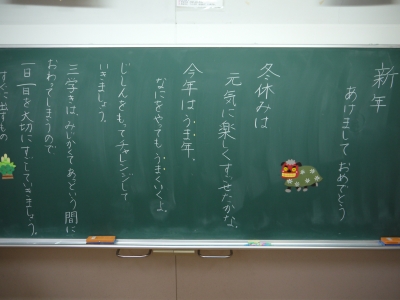 新年
あけましておめでとう
冬休みは
元気に楽しくすごせたかな。
今年はうま年。
なにをやってもうまくいくよ
じしんをもってチャレンジして
いきましょう。
三学きは、みじかくてあっという間に
おわってしまうので
一日一日を大切にすごしていきましょう。
すぐに出すもの